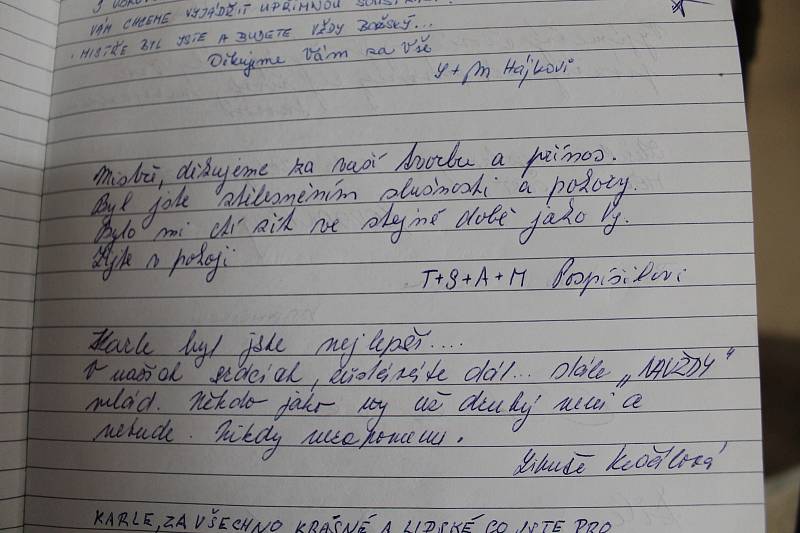 VÁM CHCEME VYJÁDŘIT UPŘÍMNOU
MISTŘE BYL JSTE A BUDETE VŽDY BOŽSKÝ...
Děkujeme Vám za vše
Y+M Hájkovi
Mistře, děkujeme za vaší tvorbu a přínos.
Byl jste ztělesněním slušnosti a pokory.
Bylo mi ctí žít ve stejné době jako Vy.
v pokoji
T+S+A+M Pospíšilovi
Karle byl jste nejlepší....
V našich srdcích, zůstáváte dál... stále „NAVŽDY"
mlád. Někdo jako vy už druhý není a
nebude. Nikdy nezapomenu.
Libuše
KARLE, ZA VŠECHNO KRÁSNÉ A LIDSKÉ CO JSTE PRO